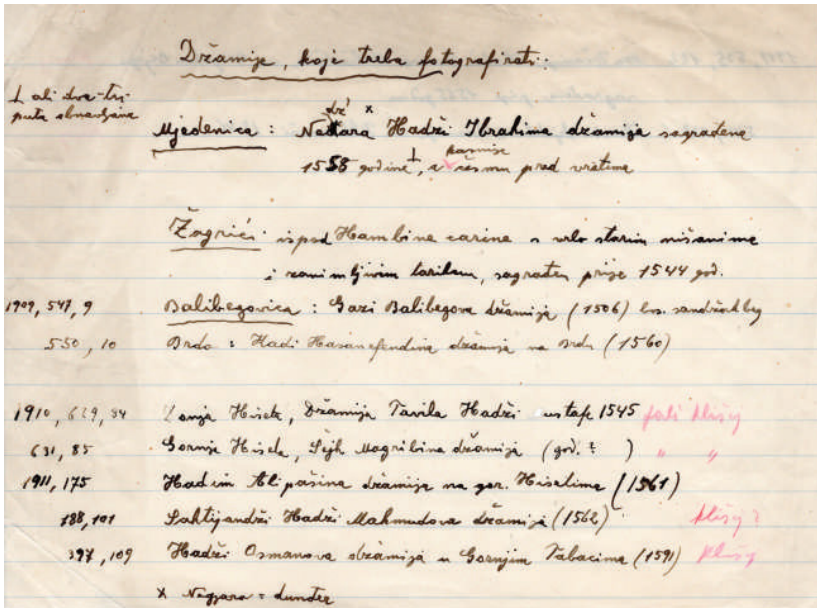 Džamije, koje treba fotografirati:
⊥ ali dva-tri
puta obnavljana
Mjedenica: Nedžara Hadži Ibrahima džamija sagrađena
1558 godine ⊥, s kasnije česmom pred vratima
Žagrići ispod Hambina carina s vrlo starim nišanima
i zanimljivim tarihom, sagrađen prije 1544 god.
1909, 547, 9 Balibegovica: Gazi Balibegova džamija (1506) bos. sandžakbeg
550, 10 Brdo: Kadi Hasanefendina džamija na Brdu (1560)
1910, 629, 84 Donja Hiseta, Džamija Tavila Hadži Mustafe 1545 fali klišej
631, 85 Gornja Hiseta, Šejh Magribina džamija (god. ? ) " "
1911, 175 Hadim Alipašina džamija na gor. Hisetima (1561)
188, 101 Sahtijandži Hadži Mahmudova džamija (1562) klišej ?
397, 109 Hadži Osmanova džamija u Gornjim Tabacima (1591) klišej
x Neggara = dunđer